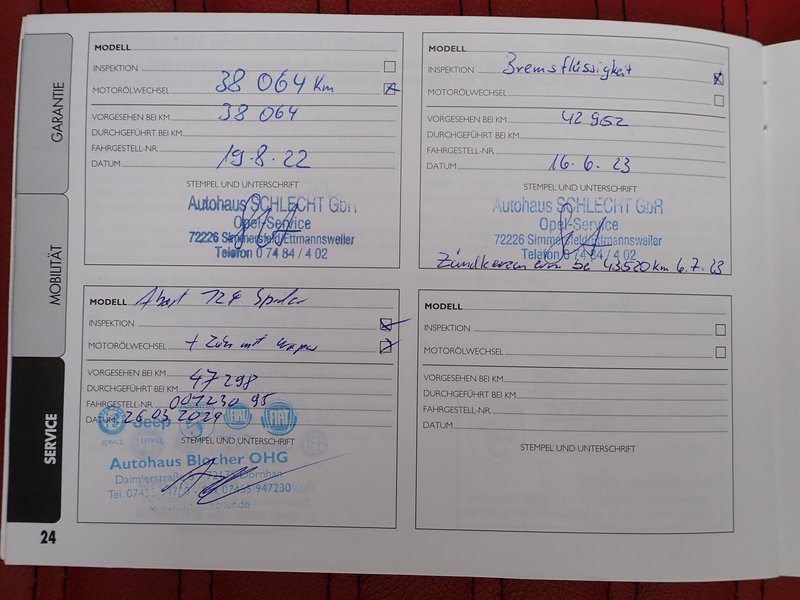 GARANTIE
MOBILITÄT
SERVICE
MODELL
INSPEKTION
MOTORÖLWECHSEL 38 064 Km
VORGESEHEN BEI KM 38 064
DURCHGEFÜHRT BEI KM
FAHRGESTELL-NR.
DATUM 19.8.22
STEMPEL UND UNTERSCHRIFT
Autohaus SCHLECHT GbR
Opel-Service
72226 Simmersfeld/Ettmannsweiler
Telefon 0 74 84 / 4 02
MODELL
INSPEKTION Bremsflüssigkeit
MOTORÖLWECHSEL
VORGESEHEN BEI KM 42 952
DURCHGEFÜHRT BEI KM
FAHRGESTELL-NR.
DATUM 16.6.23
STEMPEL UND UNTERSCHRIFT
Autohaus SCHLECHT GbR
Opel-Service
72226 Simmersfeld/Ettmannsweiler
Telefon 0 74 84 / 4 02
Zündkerzen 43520 km 6.7.23
MODELL Abart 124 Spider
INSPEKTION
MOTORÖLWECHSEL +
VORGESEHEN BEI KM 47298
DURCHGEFÜHRT BEI KM
FAHRGESTELL-NR. 00123095
DATUM 26.03.2024
Jeep FIAT FIAT
SERVICE SERVICE
STEMPEL UND UNTERSCHRIFT
Autohaus Blocher OHG
Daimlerstraße 72175 Dornhan
Tel. 07455 Fax 07455-947230
MODELL
INSPEKTION
MOTORÖLWECHSEL
VORGESEHEN BEI KM
DURCHGEFÜHRT BEI KM
FAHRGESTELL-NR.
DATUM
STEMPEL UND UNTERSCHRIFT
24